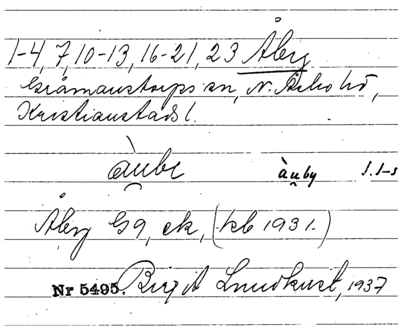 1-4, 7, 10-13, 16-21, 23 Åby
Gråmanstorps sn, N. Åsbo hd,
Kristianstads l.
àu̯bɩ àu̯by 1.1-s
Åby G9, ek, (kb 1931.)
Nr 5495. Birgit Lundkvist, 1937